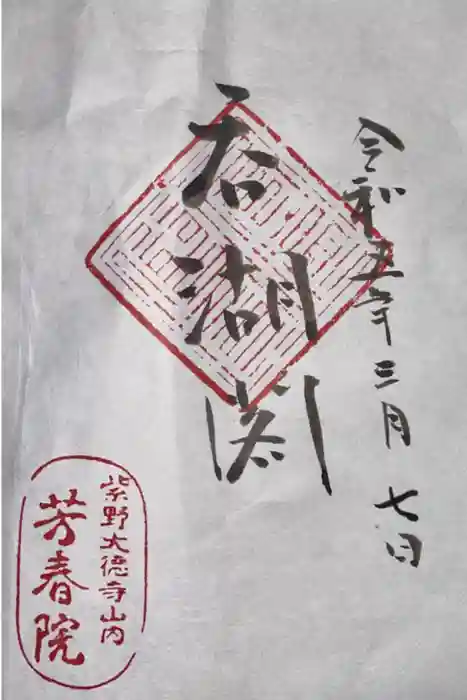 令和五年三月七日
呑湖閣
紫野大徳寺山内
芳春院